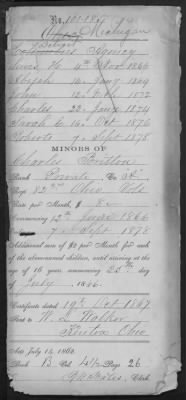 No. 101.184
Michigan
Agency
4th Nov 1866
Abijah 16, Jany 1869
John 12, Feb 1872
Charles 22, June 1874
Sarah E. 14, Oct 1876
Roberts 7, Sept 1878
MINORS OF
Charles Britton
Rank Private Co.
82nd Ohio Vols
Rate per Month, $ 8
Commencing 13th June 1866
7, Sept 1878
Additional sum of $2 per Month for each
of the above-named children, until arriving at the
age of 16 years, commencing 25th day
of July 1866.
Certificate dated 19th Oct 1867
Sent to W. L. Walker
Kenton Ohio
Acts July 14 1862
Book B Vol. 4½ Page 26
Clerk